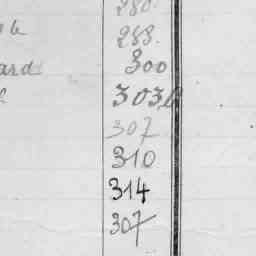 280.
288.
ard 300
303
307
310
314
307